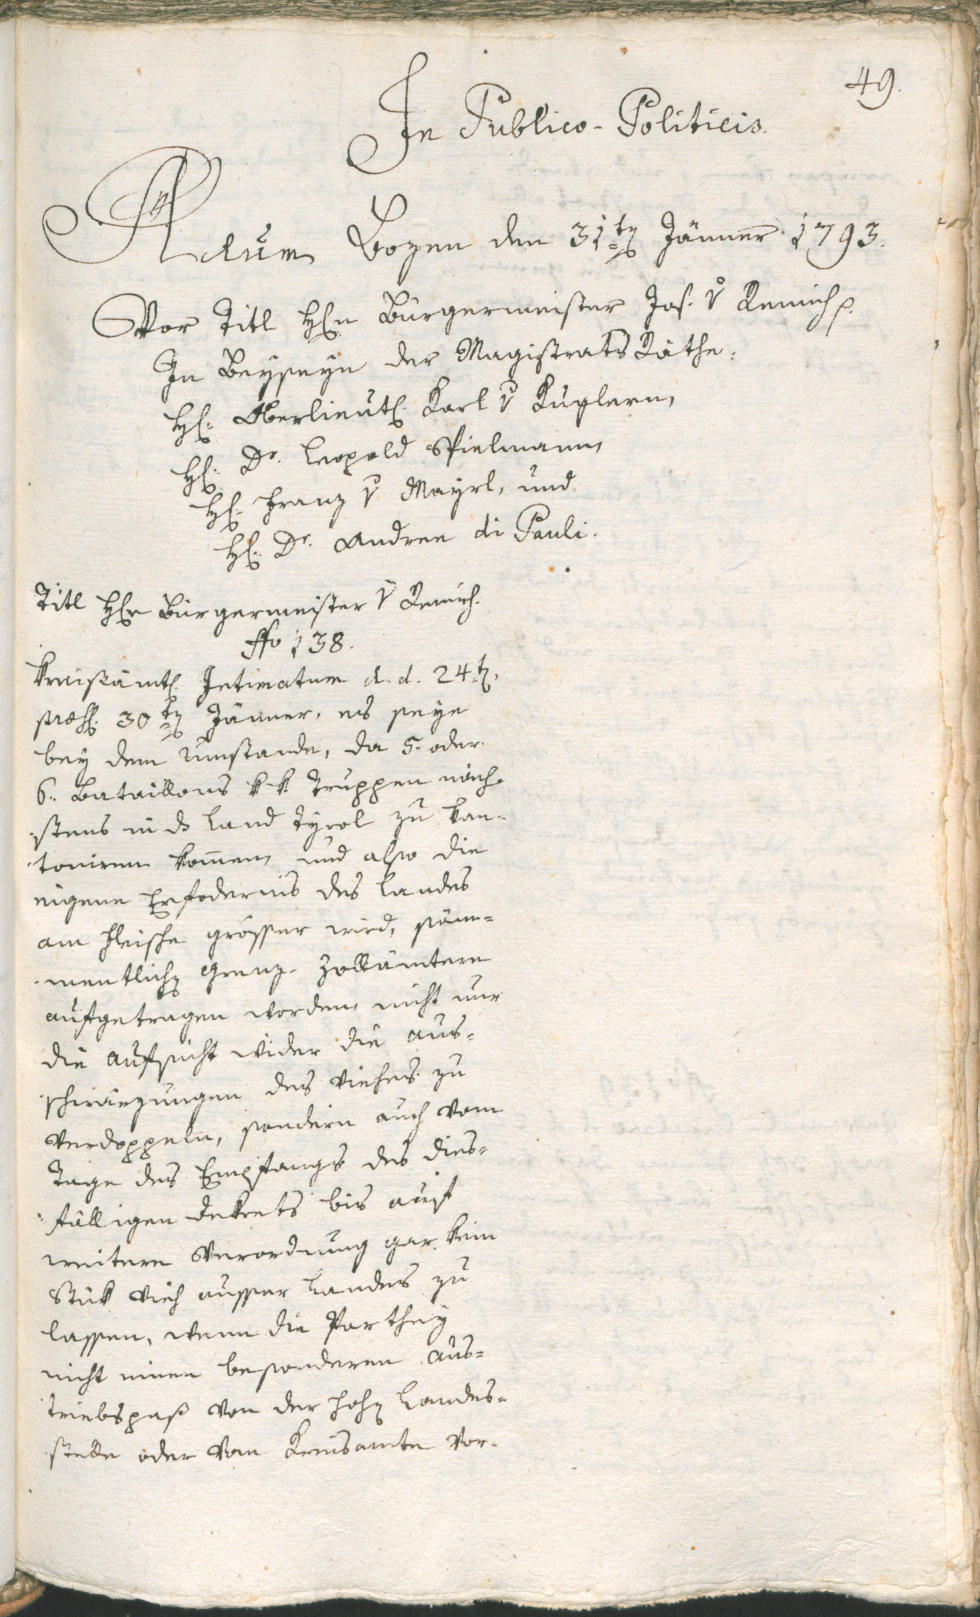 49.
In Publico-Politicis.
Actum Bozen den 31ten Jänner 1793.
Vor Titl Hℓn Bürgermeister Jos. v Remich p.
In Beyseyn der Magistrats Räthe:
Hℓ: Oberlieutℓ. Karl v Kuglern,
Hℓ: Dr. Leopold Spielmann,
Hℓ: Franz v Mayrl, und
Hℓ: Dr. Andree di Pauli.
Titl Hℓr Bürgermeister v Remich.
No 138.
Kreisämtℓ. Intimatum d. d. 24t,
præs. 30ten Jänner, es seye
bey dem Umstande, da 5. oder
6. Bataillons k k Truppen näch-
stens in ds Land Tyrol zu kan-
toniren kommen, und also die
eigene Erfodernis des Landes
am Fleische grösser wird, säm-
mentlichen Grenz-Zollämtern
aufgetragen worden, nicht nur
die Aufsicht wider die Aus-
schwärzungen des Viehes zu
verdoppeln, sondern auch vom
Tage des Empfangs des dies-
fälligen Dekrets bis auf
weitere Verordnung gar kein
Stük Vieh ausser Landes zu
lassen, wenn die Parthey
nicht einen besonderen Aus-
triebspaß von der hohen Landes-
stelle oder vom Kreisamte vor-